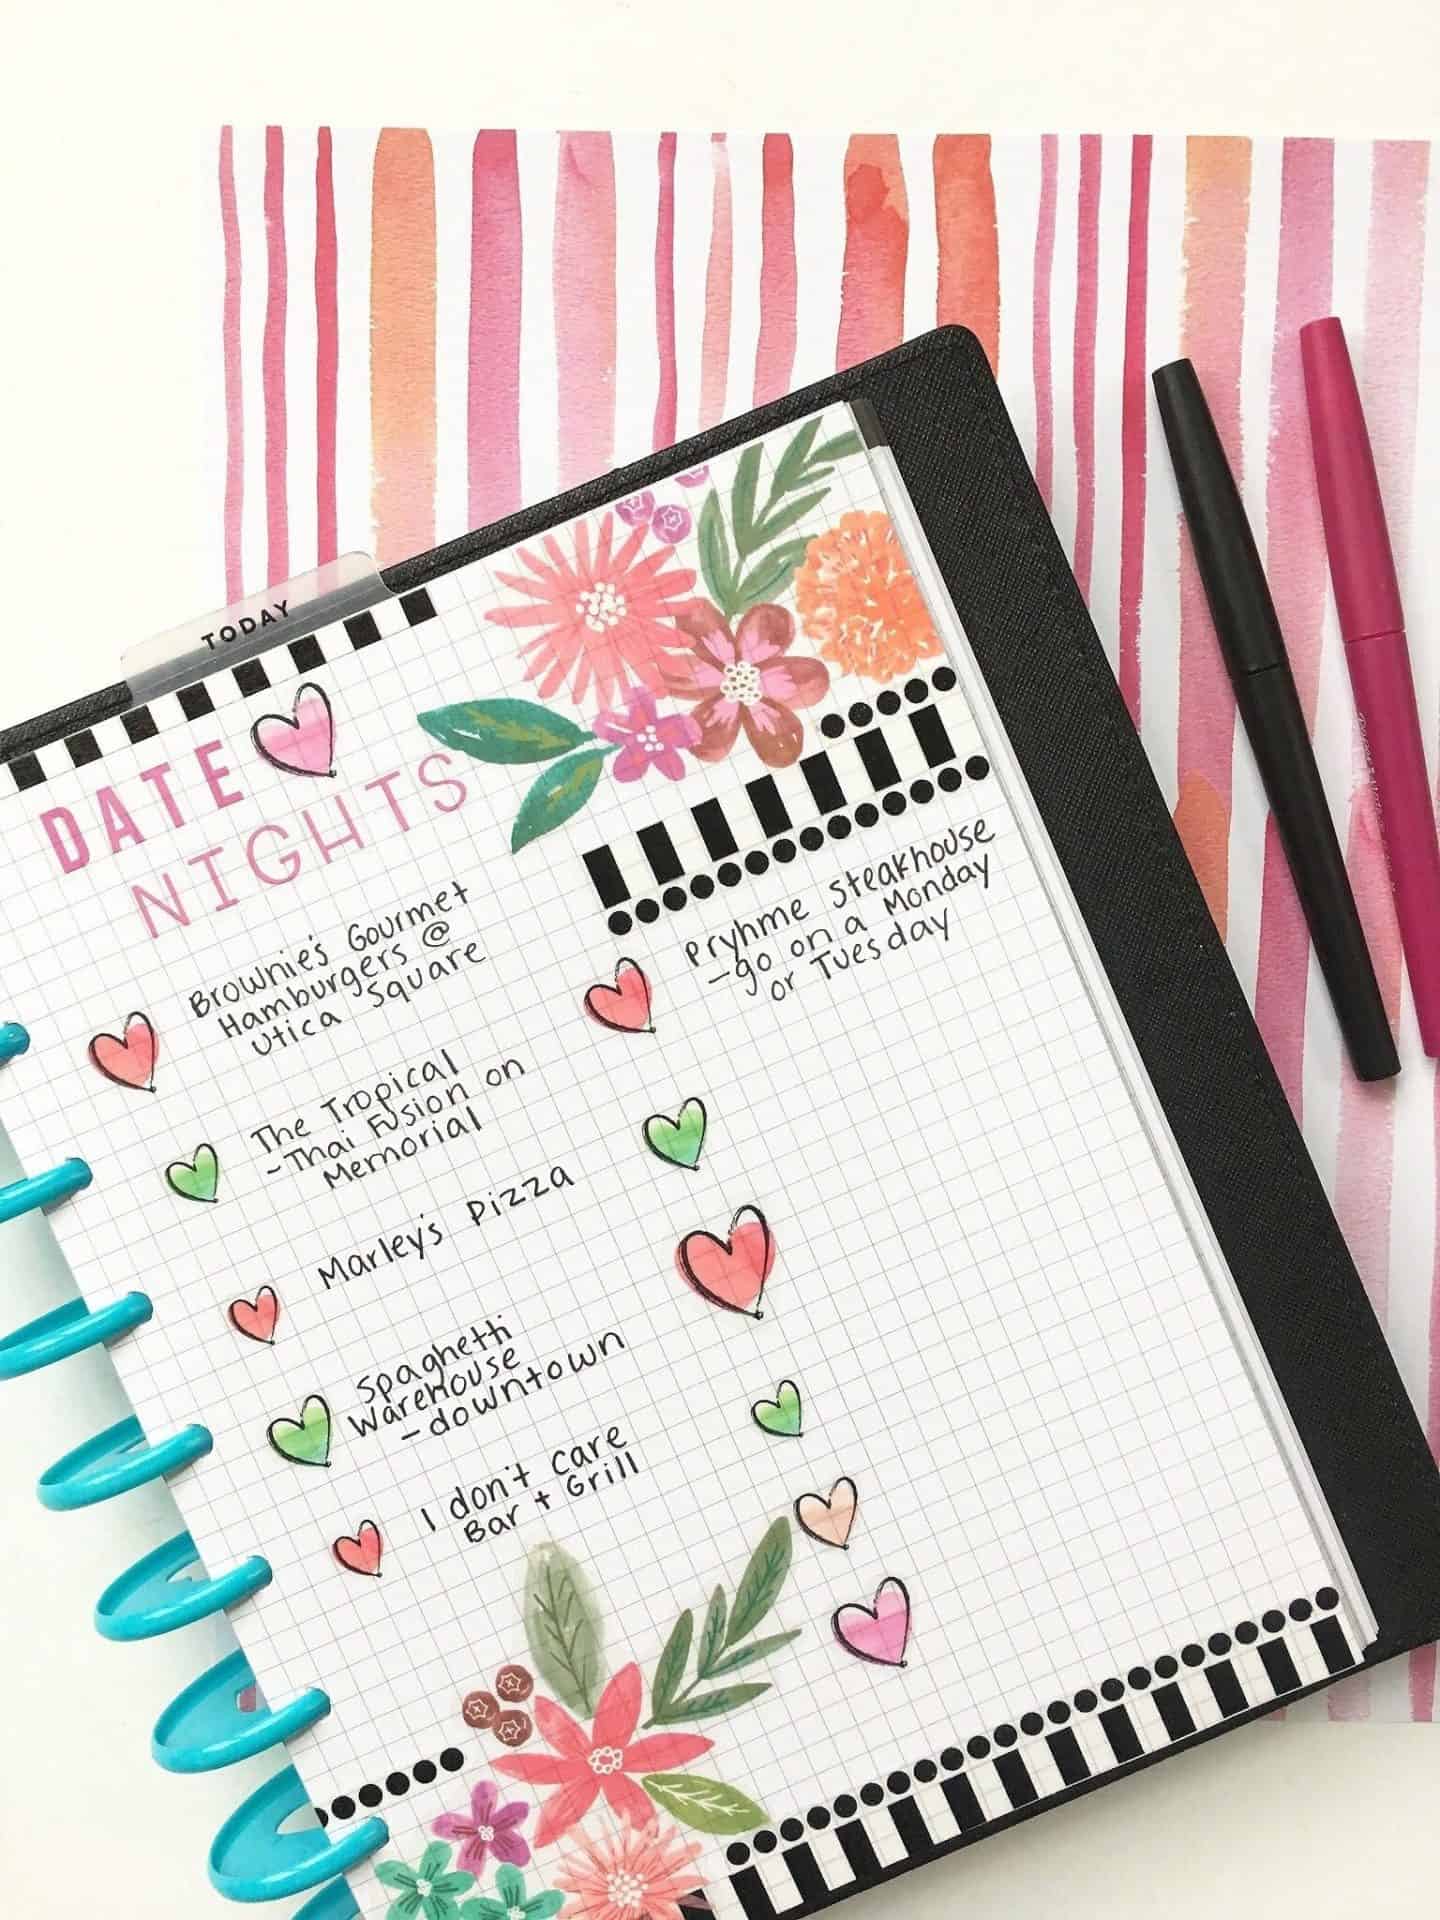 TODAY
DATE
NIGHTS
Brownie's Gourmet
Hamburgers @
Utica Square
The Tropical
-Thai Fusion on
Memorial
Marley's Pizza
Spaghetti
Warehouse
-downtown
I don't care
Bar + Grill
Pryhme Steakhouse
-go on a Monday
or Tuesday